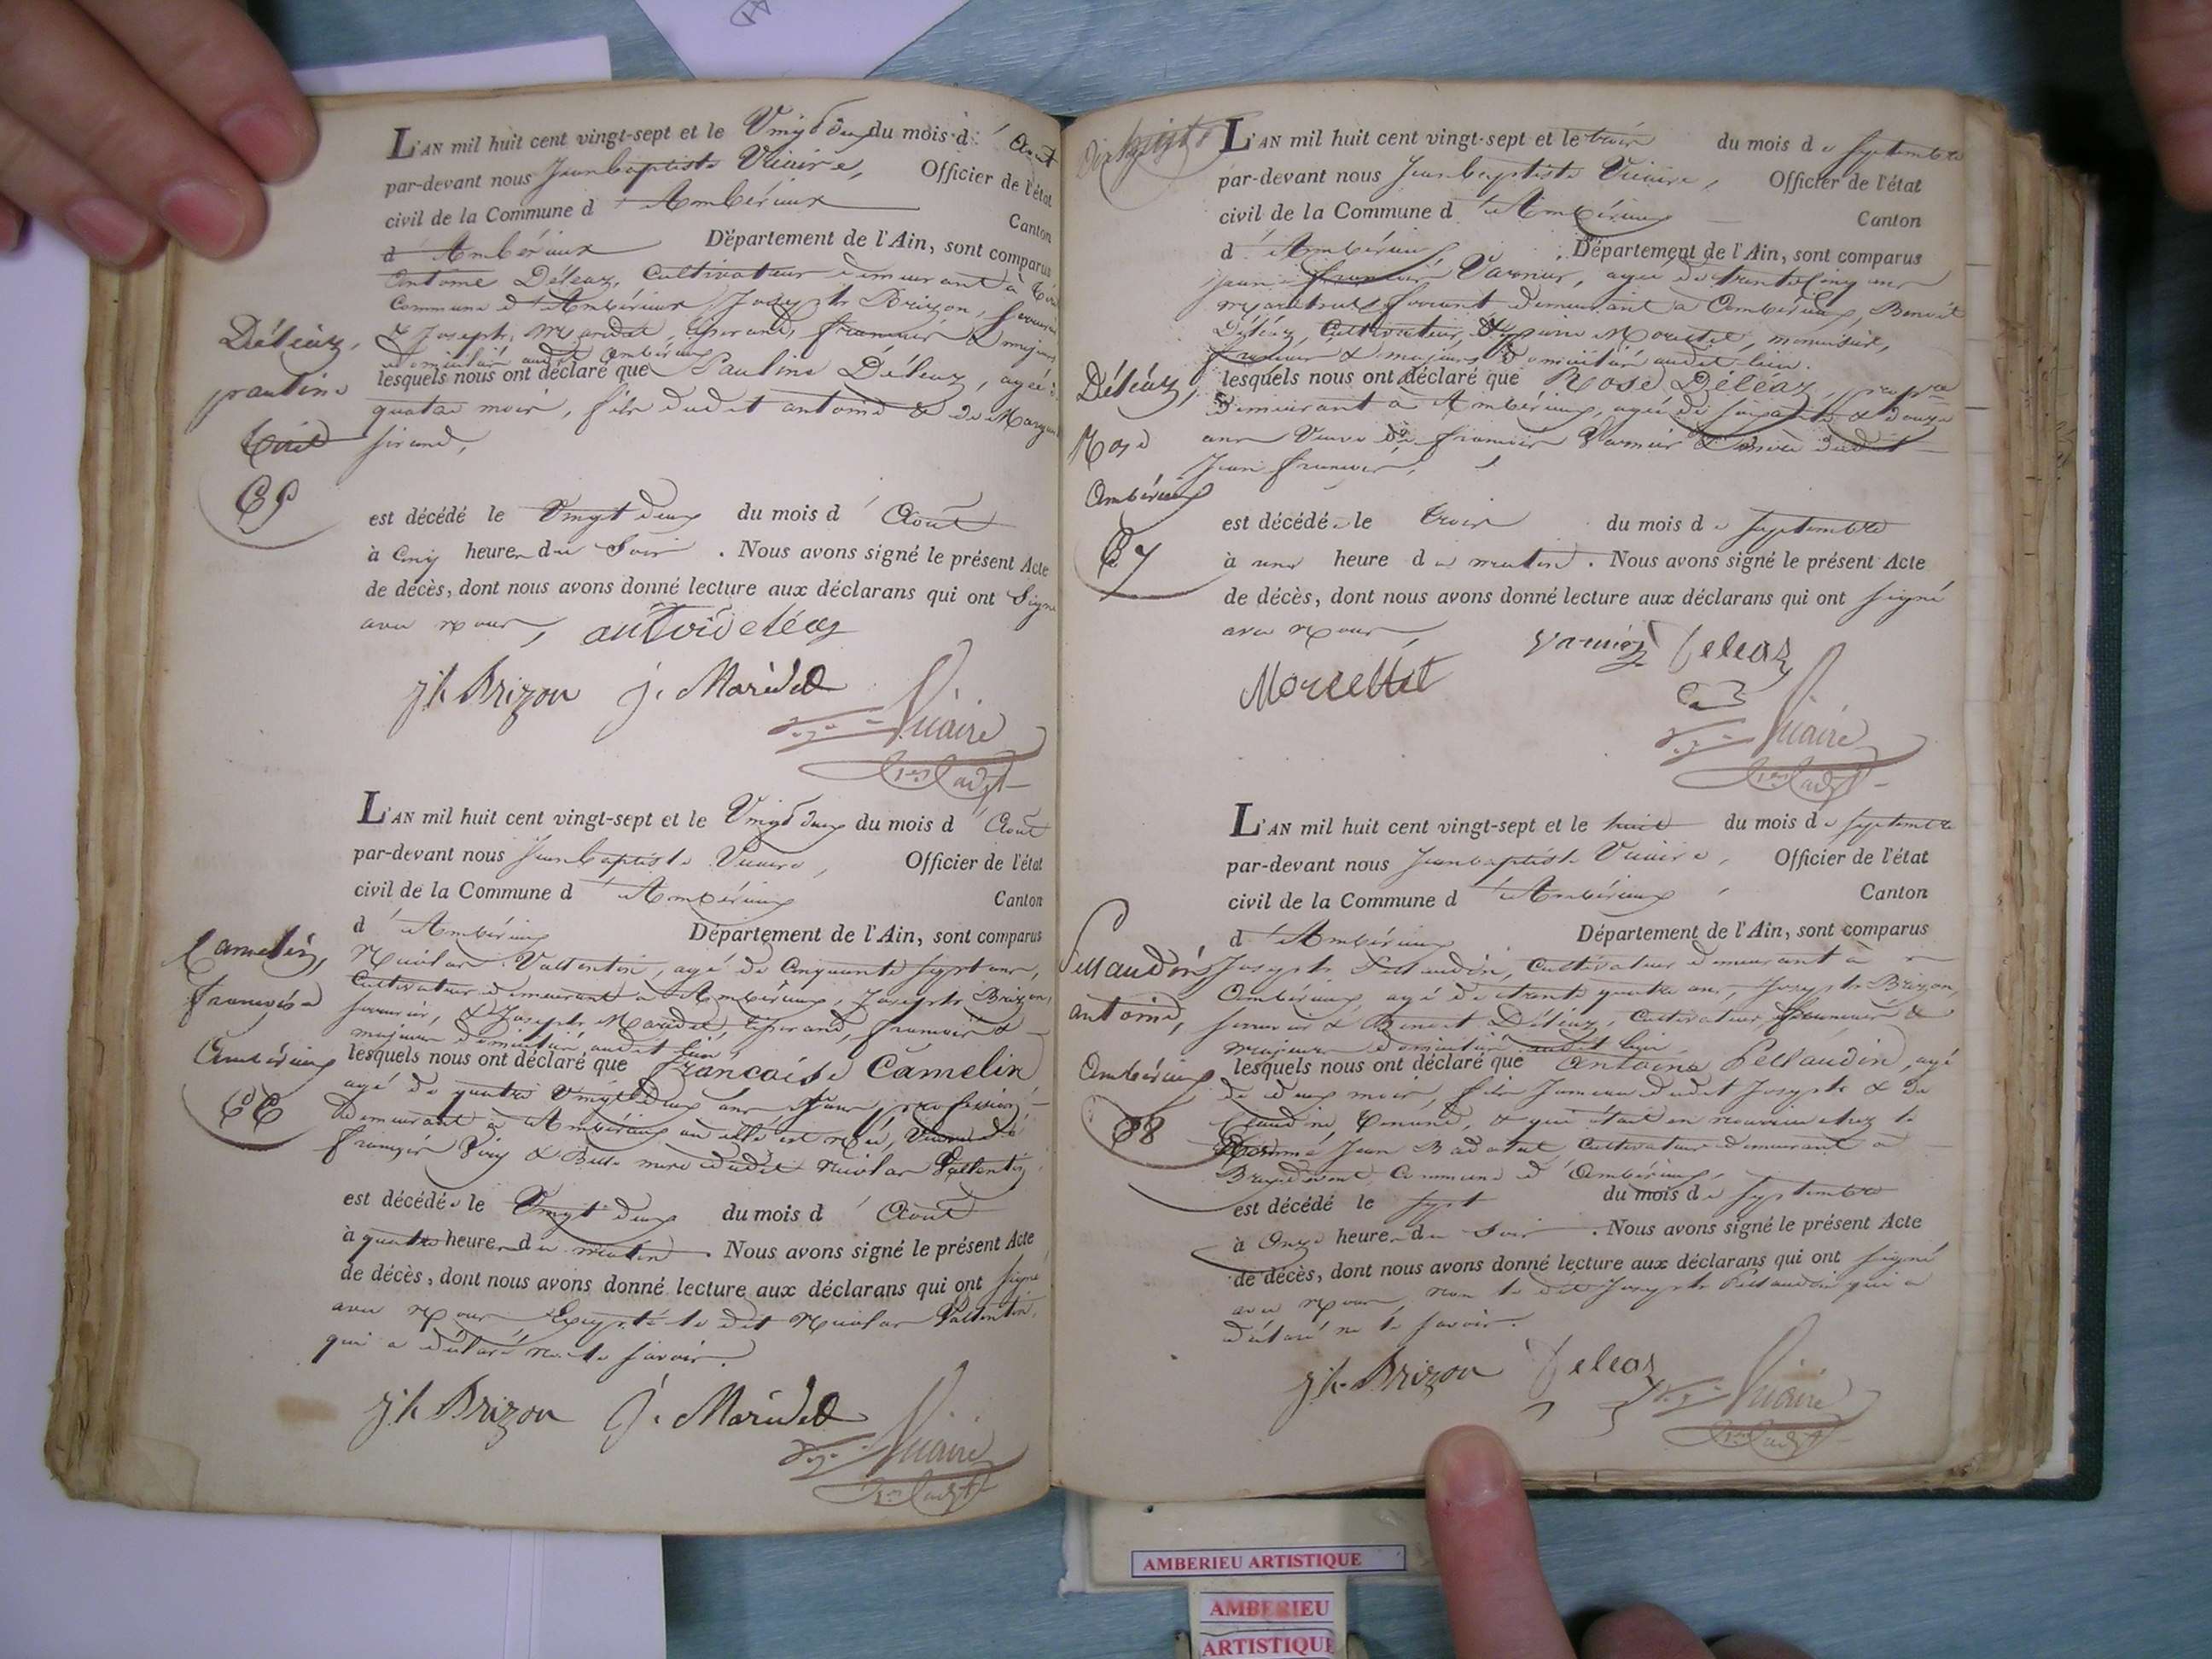 L'AN mil huit cent vingt-sept et le Vingt deux du mois d' Août
par-devant nous Jean baptiste Vicaire, Officier de l'état
civil de la Commune d'Ambérieux Canton
d'Ambérieux Département de l'Ain, sont comparus
Antoine Déléaz, Cultivateur demeurant à
Commune d'Ambérieux, Joseph Brizon,
& Joseph Maridet, tisserand, francais & majeurs
domiciliés audit Ambérieux
Déléaz,
pauline
lesquels nous ont déclaré que Pauline Déléaz, agée de
quatre mois, fille dudit antoine & de
sirand,
65
est décédé le Vingt deux du mois d' Août
à Cinq heures du Soir. Nous avons signé le présent Acte
de décès, dont nous avons donné lecture aux déclarans qui ont Signé
avec nous,
jh Brizon j. Maridet
Vicaire
L'AN mil huit cent vingt-sept et le Vingt deux du mois d' Août
par-devant nous Jean baptiste Vicaire, Officier de l'état
civil de la Commune d'Ambérieux Canton
d'Ambérieux Département de l'Ain, sont comparus
Nicolas Vallentin, agé de Cinquante sept ans,
Cultivateur demeurant à Ambérieux, Joseph Brizon,
& Joseph Maridet, tisserand, francais &
majeurs domiciliés audit lieu,
Camelin,
françoise
Ambérieux
66
lesquels nous ont déclaré que Francoise Camelin
agée de quatre Vingt deux ans, Sans profession,
demeurant à Ambérieux où elle est née, Veuve de
françois & Belle mere dudit Nicolas Vallentin
est décédée le Vingt deux du mois d' Août
à quatre heures du matin. Nous avons signé le présent Acte
de décès, dont nous avons donné lecture aux déclarans qui ont signé
avec nous, Excepté le dit Nicolas Vallentin,
qui a déclaré ne le savoir.
jh Brizon J. Maridet
Vicaire
L'AN mil huit cent vingt-sept et le trois du mois de septembre
par-devant nous Jean baptiste Vicaire, Officier de l'état
civil de la Commune d'Ambérieux Canton
d'Ambérieux, Département de l'Ain, sont comparus
jean francois Varnier, agé de trente Cinq ans
demeurant à Ambérieux, Benoit
Déléaz, Cultivateur, & menuisier,
francais & majeurs domiciliés audit lieu.
Déléaz,
Rose
Ambérieux
67
lesquels nous ont déclaré que Rose Déléaz,
demeurant à Ambérieux, agée de soixante & douze
ans Veuve de francois Varnier & mère dudit
Jean francois,
est décédée le trois du mois de septembre
à une heure du matin. Nous avons signé le présent Acte
de décès, dont nous avons donné lecture aux déclarans qui ont signé
avec nous,
Varnier Deleaz
Vicaire
L'AN mil huit cent vingt-sept et le huit du mois de septembre
par-devant nous Jean baptiste Vicaire, Officier de l'état
civil de la Commune d'Ambérieux Canton
d'Ambérieux Département de l'Ain, sont comparus
Joseph Pellaudin, Cultivateur demeurant à
Ambérieux, agé de trente quatre ans, Joseph Brizon,
& Benoit Déléaz, Cultivateur, francais &
majeurs domiciliés audit lieu
Pellaudin,
antoine,
Ambérieux
68
lesquels nous ont déclaré que Antoine Pellaudin, agé
de deux mois, fils Jumeau dudit Joseph & de
Claudine & qui était en nourrice chez le
nommé Jean Cultivateur demeurant à
Commune d'Ambérieux,
est décédé le sept du mois de septembre
à Onze heures du Soir. Nous avons signé le présent Acte
de décès, dont nous avons donné lecture aux déclarans qui ont signé
avec nous, non le dit Joseph Pellaudin qui a
déclaré ne le savoir.
jh Brizon Deleaz
Vicaire
AMBERIEU ARTISTIQUE
AMBERIEU
ARTISTIQUE